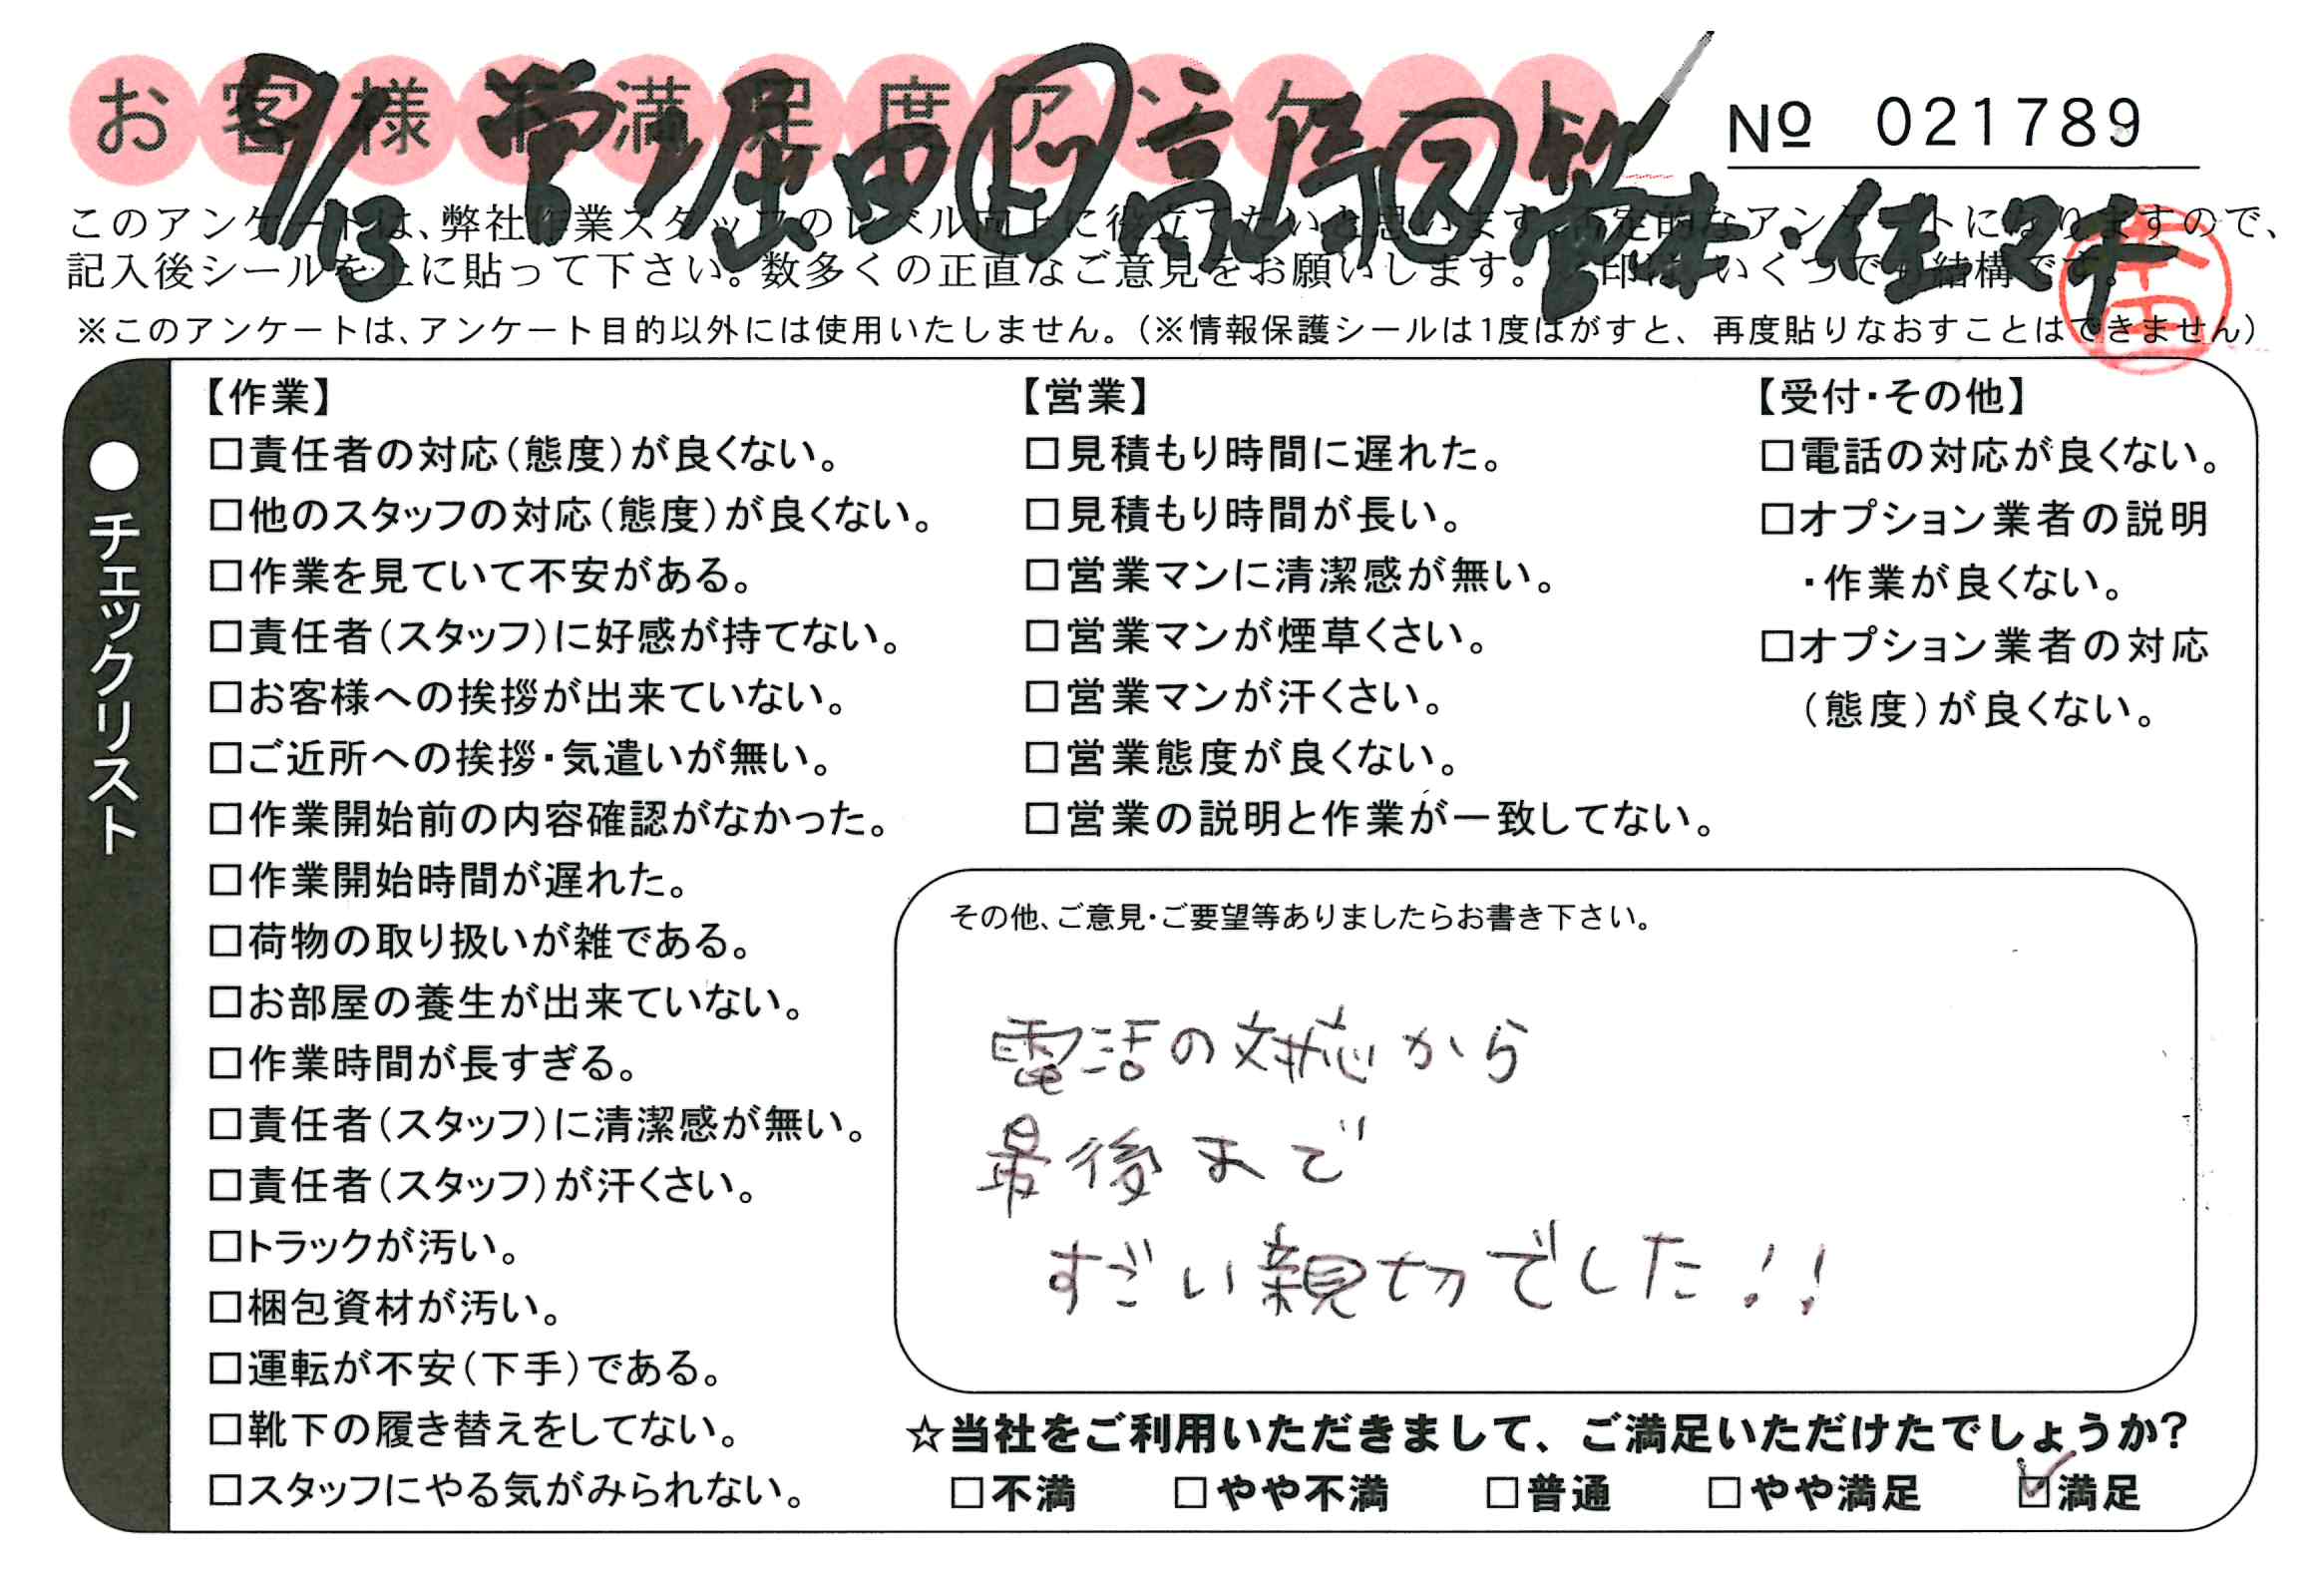 お客様不満足度アンケート
№ 021789
9/13 営/堀田 ト 高居 ス 宮本・佐々木
このアンケートは、弊社作業スタッフのレベル向上に役立てたいと思います。否定的なアンケートになりますので、
記入後シールを上に貼って下さい。数多くの正直なご意見をお願いします。 印は いくつでも結構です。
※このアンケートは、アンケート目的以外には使用いたしません。(※情報保護シールは1度はがすと、再度貼りなおすことはできません)
●チェックリスト
【作業】
□責任者の対応(態度)が良くない。
□他のスタッフの対応(態度)が良くない。
□作業を見ていて不安がある。
□責任者(スタッフ)に好感が持てない。
□お客様への挨拶が出来ていない。
□ご近所への挨拶・気遣いが無い。
□作業開始前の内容確認がなかった。
□作業開始時間が遅れた。
□荷物の取り扱いが雑である。
□お部屋の養生が出来ていない。
□作業時間が長すぎる。
□責任者(スタッフ)に清潔感が無い。
□責任者(スタッフ)が汗くさい。
□トラックが汚い。
□梱包資材が汚い。
□運転が不安(下手)である。
□靴下の履き替えをしてない。
□スタッフにやる気がみられない。
【営業】
□見積もり時間に遅れた。
□見積もり時間が長い。
□営業マンに清潔感が無い。
□営業マンが煙草くさい。
□営業マンが汗くさい。
□営業態度が良くない。
□営業の説明と作業が一致してない。
【受付・その他】
□電話の対応が良くない。
□オプション業者の説明
・作業が良くない。
□オプション業者の対応
(態度)が良くない。
その他、ご意見・ご要望等ありましたらお書き下さい。
電話の対応から
最後まで
すごい親切でした!!
☆当社をご利用いただきまして、ご満足いただけたでしょうか?
□不満 □やや不満 □普通 □やや満足 ☑満足